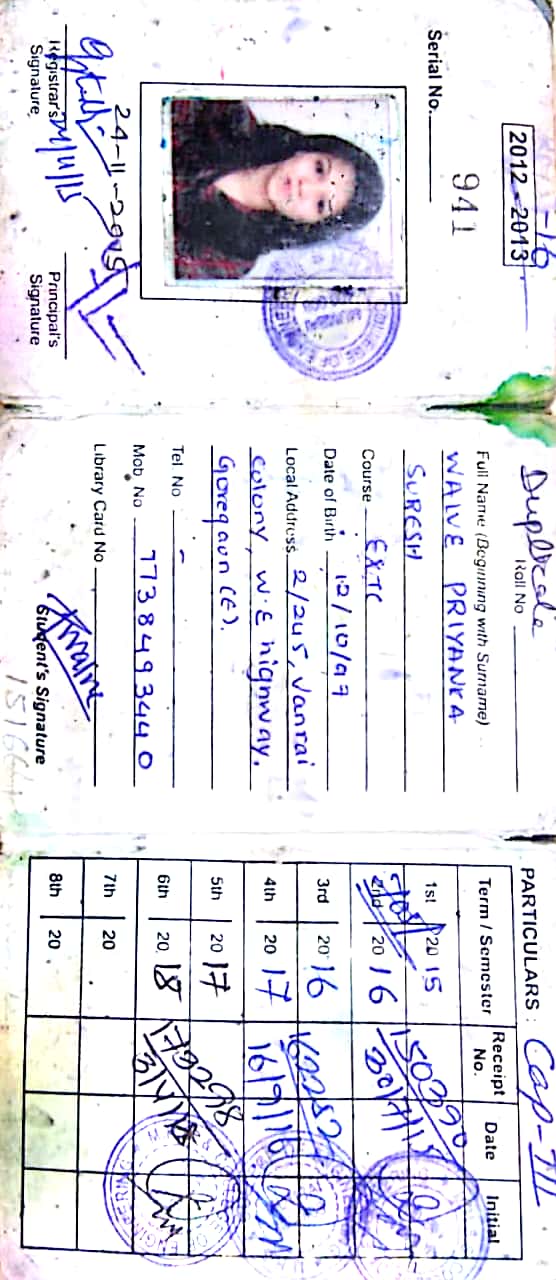 2012-2013
-16
Serial No.
941
24-11-2015
Registrar's
Signature
24/11/15
Principal's
Signature
Duplicate
Roll No
Full Name (Beginning with Surname)
WALVE PRIYANKA
SURESH
Course EXTC
Date of Birth 12/10/97
Local Address 2/245, Vanrai
colony, W.E highway,
Goregaon (E).
Tel. No -
Mob. No 7738493440
Library Card No
Student's Signature
PARTICULARS : Cap-III
Term / Semester Receipt No. Date Initial
1st 2015
2nd 20 16 150390
3rd 20 16
4th 20 17 16/9/16
5th 20 17 173298
6th 20 18 3/4/18
7th 20
8th 20